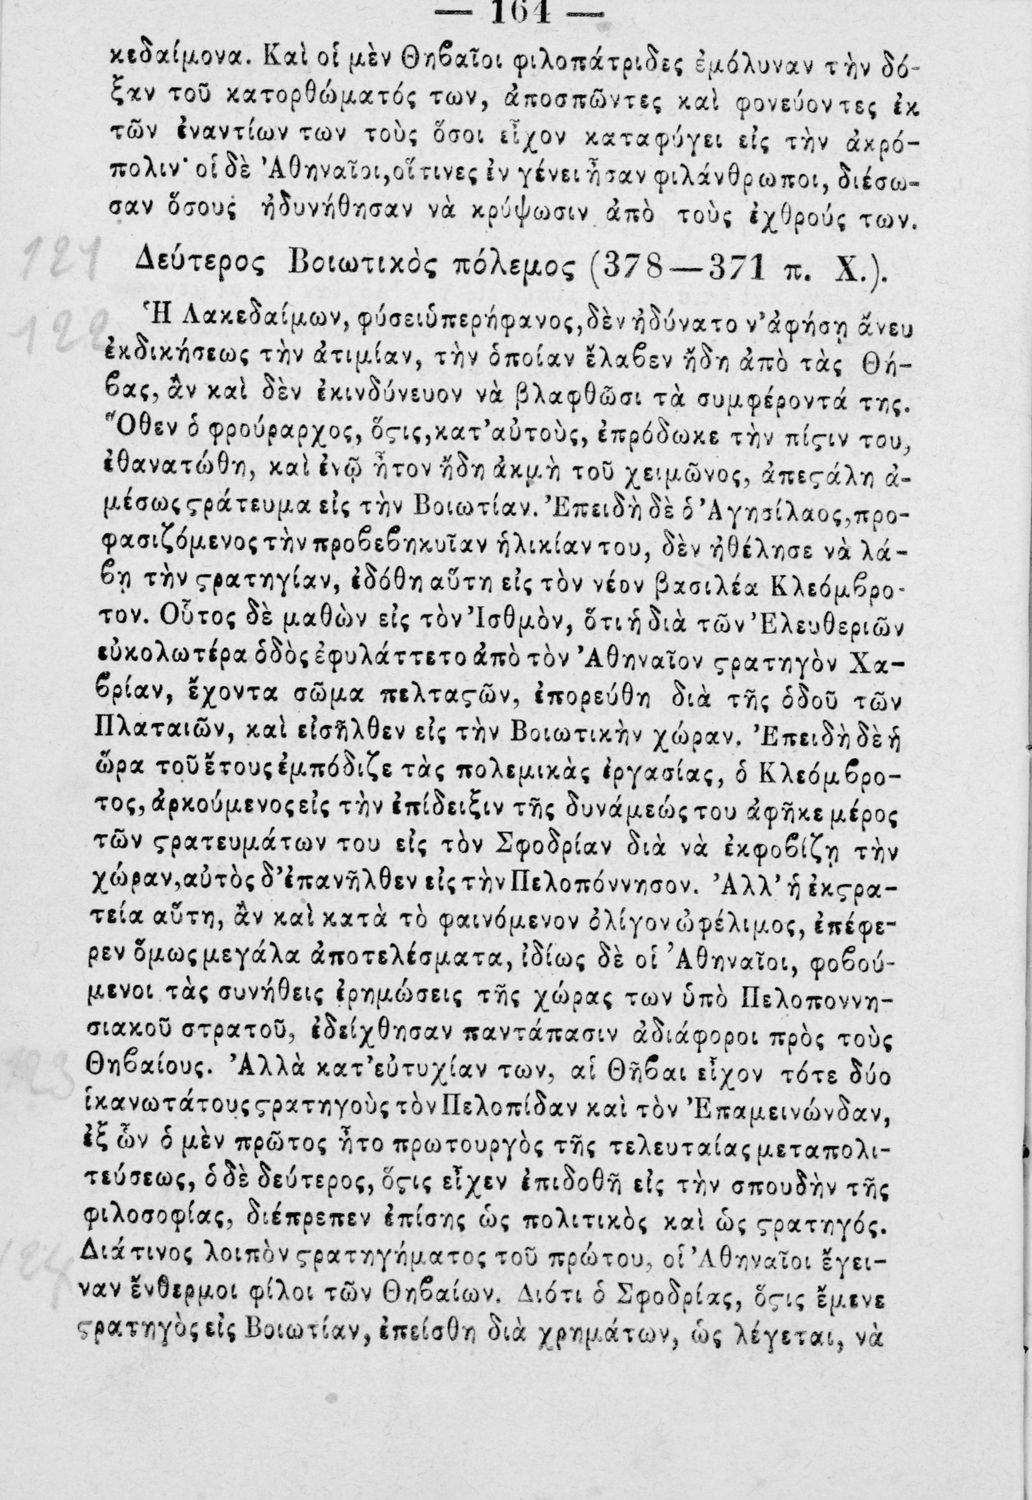 — 164 —
κεδαίμονα. Καὶ οἱ μὲν Θηβαῖοι φιλοπάτριδες ἐμόλυναν τὴν δό-
ξαν τοῦ κατορθώματός των, ἀποσπῶντες καὶ φονεύοντες ἐκ
τῶν ἐναντίων των τοὺς ὅσοι εἶχον καταφύγει εἰς τὴν ἀκρό-
πολιν· οἱ δὲ Ἀθηναῖοι, οἵτινες ἐν γένει ἦσαν φιλάνθρωποι, διέσω-
σαν ὅσους ἠδυνήθησαν νὰ κρύψωσιν ἀπὸ τοὺς ἐχθρούς των.
121
Δεύτερος Βοιωτικὸς πόλεμος (378—371 π. Χ.).
122
Ἡ Λακεδαίμων, φύσει ὑπερήφανος, δὲν ἠδύνατο ν' ἀφήσῃ ἄνευ
ἐκδικήσεως τὴν ἀτιμίαν, τὴν ὁποίαν ἔλαβεν ἤδη ἀπὸ τὰς Θή-
βας, ἂν καὶ δὲν ἐκινδύνευον νὰ βλαφθῶσι τὰ συμφέροντά της.
Ὅθεν ὁ φρούραρχος, ὅςις, κατ' αὐτοὺς, ἐπρόδωκε τὴν πίςιν του,
ἐθανατώθη, καὶ ἐνῷ ἦτον ἤδη ἀκμὴ τοῦ χειμῶνος, ἀπεςάλη ἀ-
μέσως ςράτευμα εἰς τὴν Βοιωτίαν. Ἐπειδὴ δὲ ὁ Ἀγησίλαος, προ-
φασιζόμενος τὴν προβεβηκυῖαν ἡλικίαν του, δὲν ἠθέλησε νὰ λά-
βῃ τὴν ςρατηγίαν, ἐδόθη αὕτη εἰς τὸν νέον βασιλέα Κλεόμβρο-
τον. Οὗτος δὲ μαθὼν εἰς τὸν Ἰσθμὸν, ὅτι ἡ διὰ τῶν Ἐλευθεριῶν
εὐκολωτέρα ὁδὸς ἐφυλάττετο ἀπὸ τὸν Ἀθηναῖον ςρατηγὸν Χα-
βρίαν, ἔχοντα σῶμα πελταςῶν, ἐπορεύθη διὰ τῆς ὁδοῦ τῶν
Πλαταιῶν, καὶ εἰσῆλθεν εἰς τὴν Βοιωτικὴν χώραν. Ἐπειδὴ δὲ ἡ
ὥρα τοῦ ἔτους ἐμπόδιζε τὰς πολεμικὰς ἐργασίας, ὁ Κλεόμβρο-
τος, ἀρκούμενος εἰς τὴν ἐπίδειξιν τῆς δυνάμεώς του ἀφῆκε μέρος
τῶν ςρατευμάτων του εἰς τὸν Σφοδρίαν διὰ νὰ ἐκφοβίζῃ τὴν
χώραν, αὐτὸς δ' ἐπανῆλθεν εἰς τὴν Πελοπόννησον. Ἀλλ' ἡ ἐκςρα-
τεία αὕτη, ἂν καὶ κατὰ τὸ φαινόμενον ὀλίγον ὠφέλιμος, ἐπέφε-
ρεν ὅμως μεγάλα ἀποτελέσματα, ἰδίως δὲ οἱ Ἀθηναῖοι, φοβού-
μενοι τὰς συνήθεις ἐρημώσεις τῆς χώρας των ὑπὸ Πελοποννη-
σιακοῦ στρατοῦ, ἐδείχθησαν παντάπασιν ἀδιάφοροι πρὸς τοὺς
123
Θηβαίους. Ἀλλὰ κατ' εὐτυχίαν των, αἱ Θῆβαι εἶχον τότε δύο
ἱκανωτάτους ςρατηγοὺς τὸν Πελοπίδαν καὶ τὸν Ἐπαμεινώνδαν,
ἐξ ὧν ὁ μὲν πρῶτος ἦτο πρωτουργὸς τῆς τελευταίας μεταπολι-
τεύσεως, ὁ δὲ δεύτερος, ὅςις εἶχεν ἐπιδοθῆ εἰς τὴν σπουδὴν τῆς
φιλοσοφίας, διέπρεπεν ἐπίσης ὡς πολιτικὸς καὶ ὡς ςρατηγός.
124
Διά τινος λοιπὸν ςρατηγήματος τοῦ πρώτου, οἱ Ἀθηναῖοι ἔγει-
ναν ἔνθερμοι φίλοι τῶν Θηβαίων. Διότι ὁ Σφοδρίας, ὅςις ἔμενε
ςρατηγὸς εἰς Βοιωτίαν, ἐπείσθη διὰ χρημάτων, ὡς λέγεται, νὰ